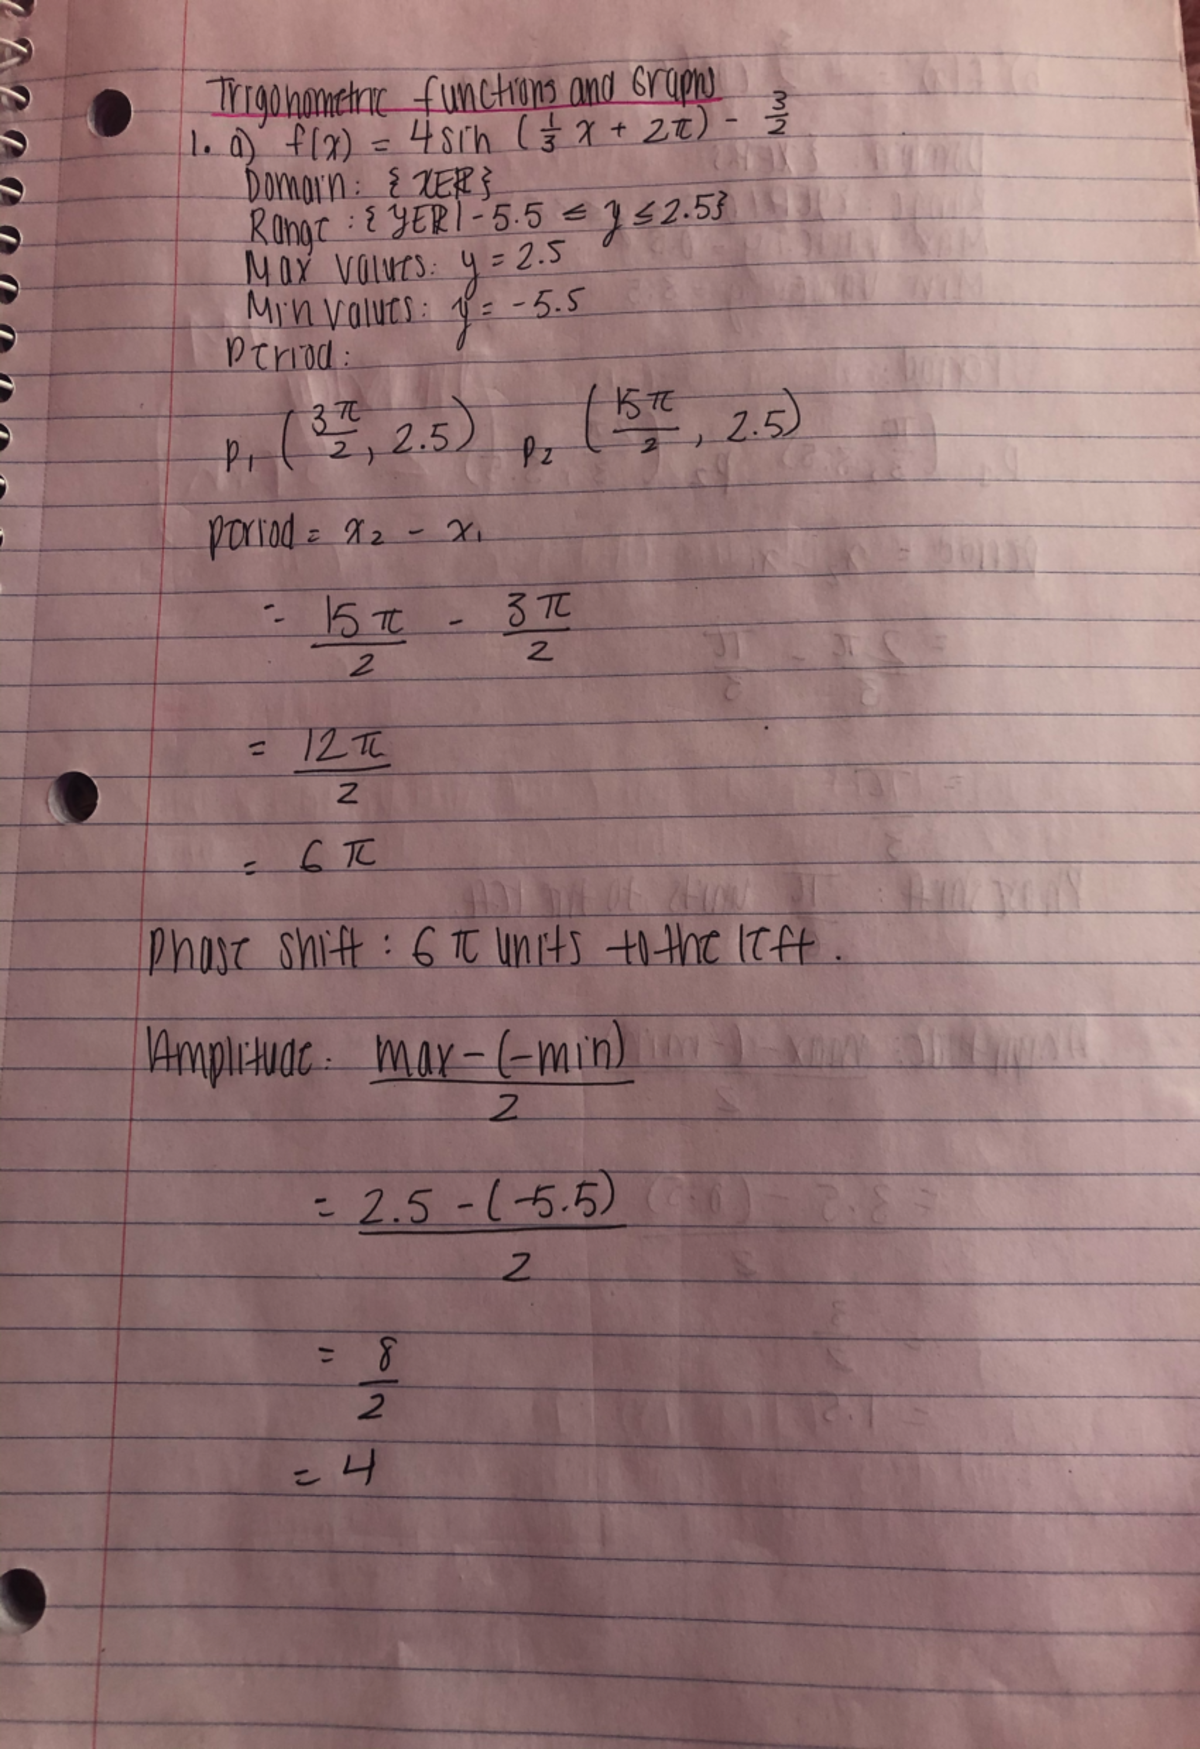 Trigonometric functions and Graphs
1. a) f(x) = 4 sin (1/3 x + 2π) - 3/2
Domain: {XER}
Range: {YER | -5.5 ≤ y ≤ 2.5}
Max values: y = 2.5
Min values: y = -5.5
Period:
P₁ (3π/2, 2.5) P₂ (15π/2, 2.5)
period = x₂ - x₁
= 15π/2 - 3π/2
= 12π/2
= 6π
Phase shift: 6π units to the left.
Amplitude: max-(-min)/2
= 2.5-(-5.5)/2
= 8/2
= 4